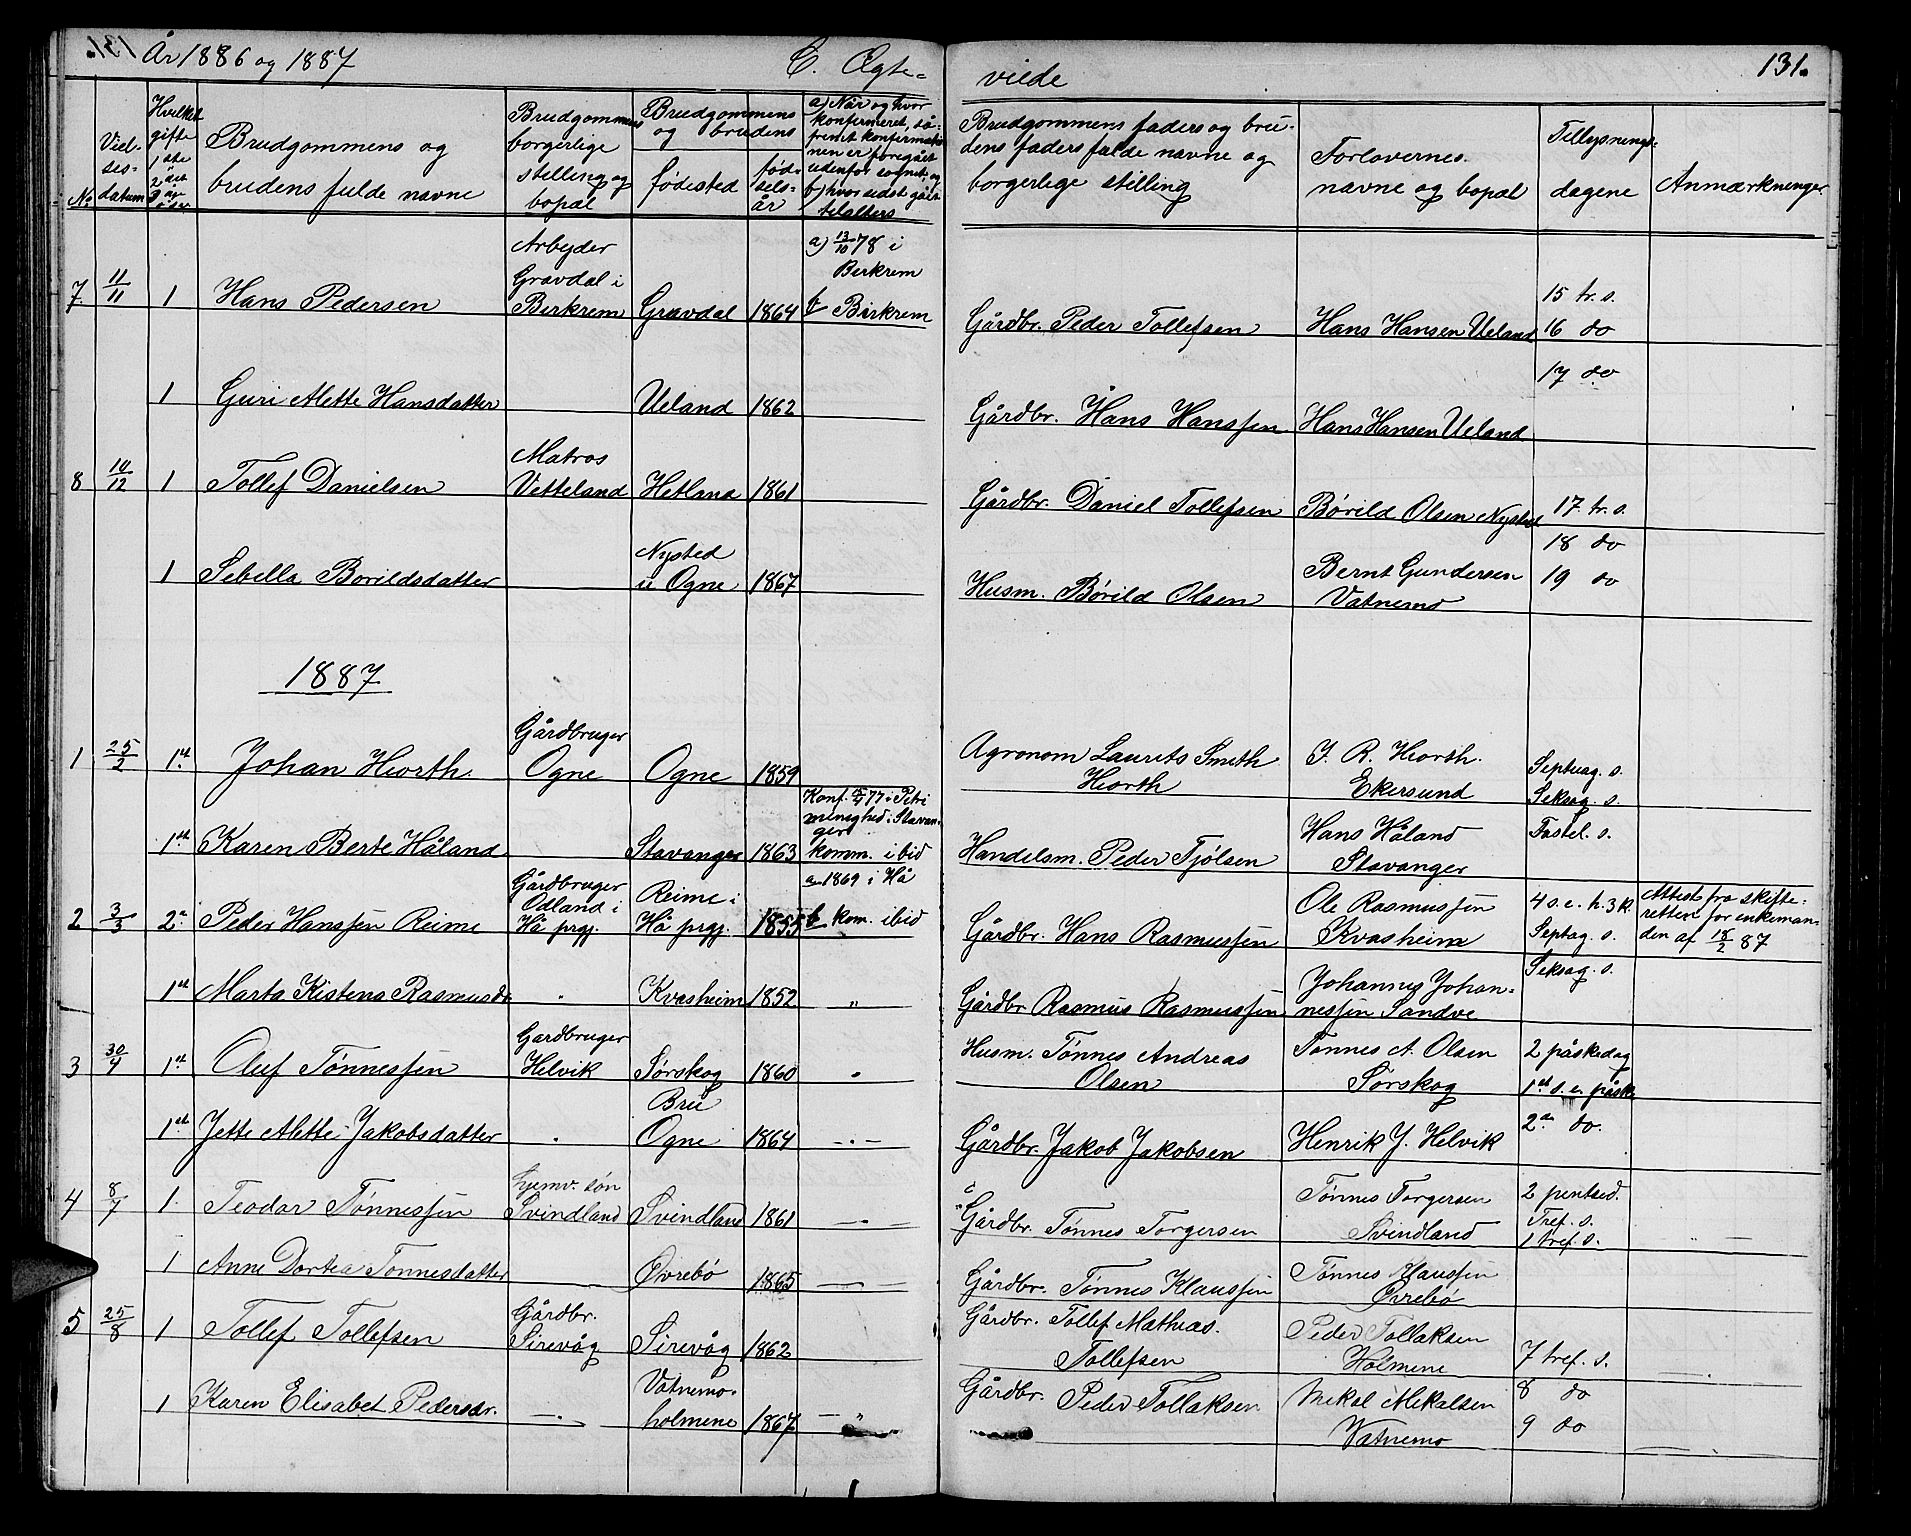 År 1886 og 1887
C. Ægte-
viede
131.
No
Viel-
ses-
datum
Hvilket
gifte
1ste
2det
Brudgommens og
brudens fulde navne
Brudgommens
borgerlige
stilling og
bopæl
Brudgommens
og brudens
fødested
fød-
sels-
år
a) Når og hvor
konfirmeret, så-
fremt konfirmatio-
nen er foregået
udenfor sognet, og
b) hvor sidst gået
til alters
Brudgommens faders og bru-
dens faders fulde navne og
borgerlige stilling
Forlovernes
navne og bopæl
Tillysnings-
dagene
Anmærkninger
7 11/11 1 Hans Pedersen Arbeyder
Gravdal i
Birkrem Gravdal 1864 a) 13/10 78 i
Birkrem
b Birkrem Gårdbr. Peder Tollefsen Hans Hansen Ueland 15 tr. s.
16 do
17 do
1 Guri Alette Hansdatter Ueland 1862 Gårdbr. Hans Hanssen Hans Hansen Ueland
8 10/12 1 Tollef Danielsen Matros
Vetteland Hetland 1861 Gårdbr. Daniel Tollefsen Børild Olsen Nysted 17 tr. s.
18 do
19 do
1 Sebella Børildsdatter Nysted
u Ogne 1867 Husm. Børild Olsen Bernt Gundersen
Vatnemo
1887
1 25/2 1st Johan Hiorth Gårdbruger
Ogne Ogne 1859 Agronom Laurits Smith
Hiorth J. R. Hiorth.
Ekersund Septuag. s.
Seksag. s.
Fastel. s.
1st Karen Berte Håland Stavanger 1863 Petri
menighed i Stavan-
ger
komm. ibid Handelsm. Peder Tjølsen Hans Håland
Stavanger
2 3/3 2n Peder Hanssen Reime Gårdbruger
Odland i
Hå prgj. Reime i
Hå prgj. 1855 a 1869 i Hå
b kom. ibid Gårdbr. Hans Rasmussen Ole Rasmussen
Kvasheim 4 s. e. h. 3 k.
Septag. s.
Seksag. s. Attest fra skifte-
retten for enkeman-
den af 18/2 87
1st Marta Kistena Rasmusdr Kvasheim 1852 " Gårdbr Rasmus Rasmussen Johannes Johan-
nessen Sandve
3 30/4 1st Oluf Tønnessen Gardbruger
Helvik Sørskog 1860 Husm. Tønnes Andreas
Olsen Tønnes A. Olsen
Sørskog 2 påskedag
1st s. e. påske
2n do.
1st Jette Alette Jakobsdatter Bru
Ogne 1864 Gårdbr. Jakob Jakobsen Henrik J. Helvik
4 8/7 1. Teodor Tønnessen hjemv. søn
Svindland Svindland 1861 Gårdbr. Tønnes Torgersen Tønnes Torgersen
Svindland 2 pintsed.
Tref. s.
1 tref. s.
1 Anne Dortea Tønnesdatter Øvrebø 1865 Gårdbr. Tønnes Klaussen Tønnes Klaussen
Øvrebø
5 25/8 1 Tollef Tollefsen Gårdbr.
Sirevåg Sirevåg 1862 Gårdbr. Tollef Mathias.
Tollefsen Peder Tollaksen
Holmene 7 tref. s.
8 do
9 do
1 Karen Elisabet Pedersdr. Vatnemo-
holmene 1867 Gårdbr. Peder Tollaksen Mikal Mikalsen
Vatnemo